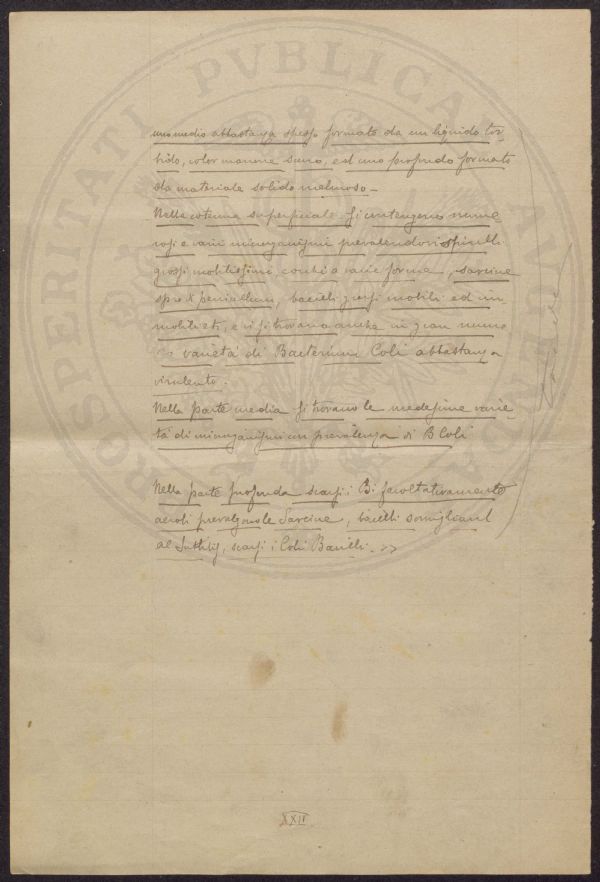 uno medio abbastanza spesso formato da un liquido tor-
bido, color marrone scuro, ed uno profondo formato
da materiale solido melmoso -
Nella cotenna superficiale si contengono nume
rosi e varii microrganismi prevalendovi spirilli
grossi mobilissimi cocchi a varie forme, sarcine
spore penicillium, bacilli grossi mobili ed im
mobili etc, e vi si trovano anche in gran nume
varietà di Bacterium Coli abbastanza
virulento.
Nella parte media si trovano le medesime varie
tà di microrganismi con prevalenza di B Coli
Nella parte profonda scarsi i B. facoltativamente
aerobi prevalgono le Sarcine, bacilli somiglianti
al Subtilis, scarsi i Coli Bacilli. >>
XXII
PROSPERITATI PVBLICAE AVGENDAE